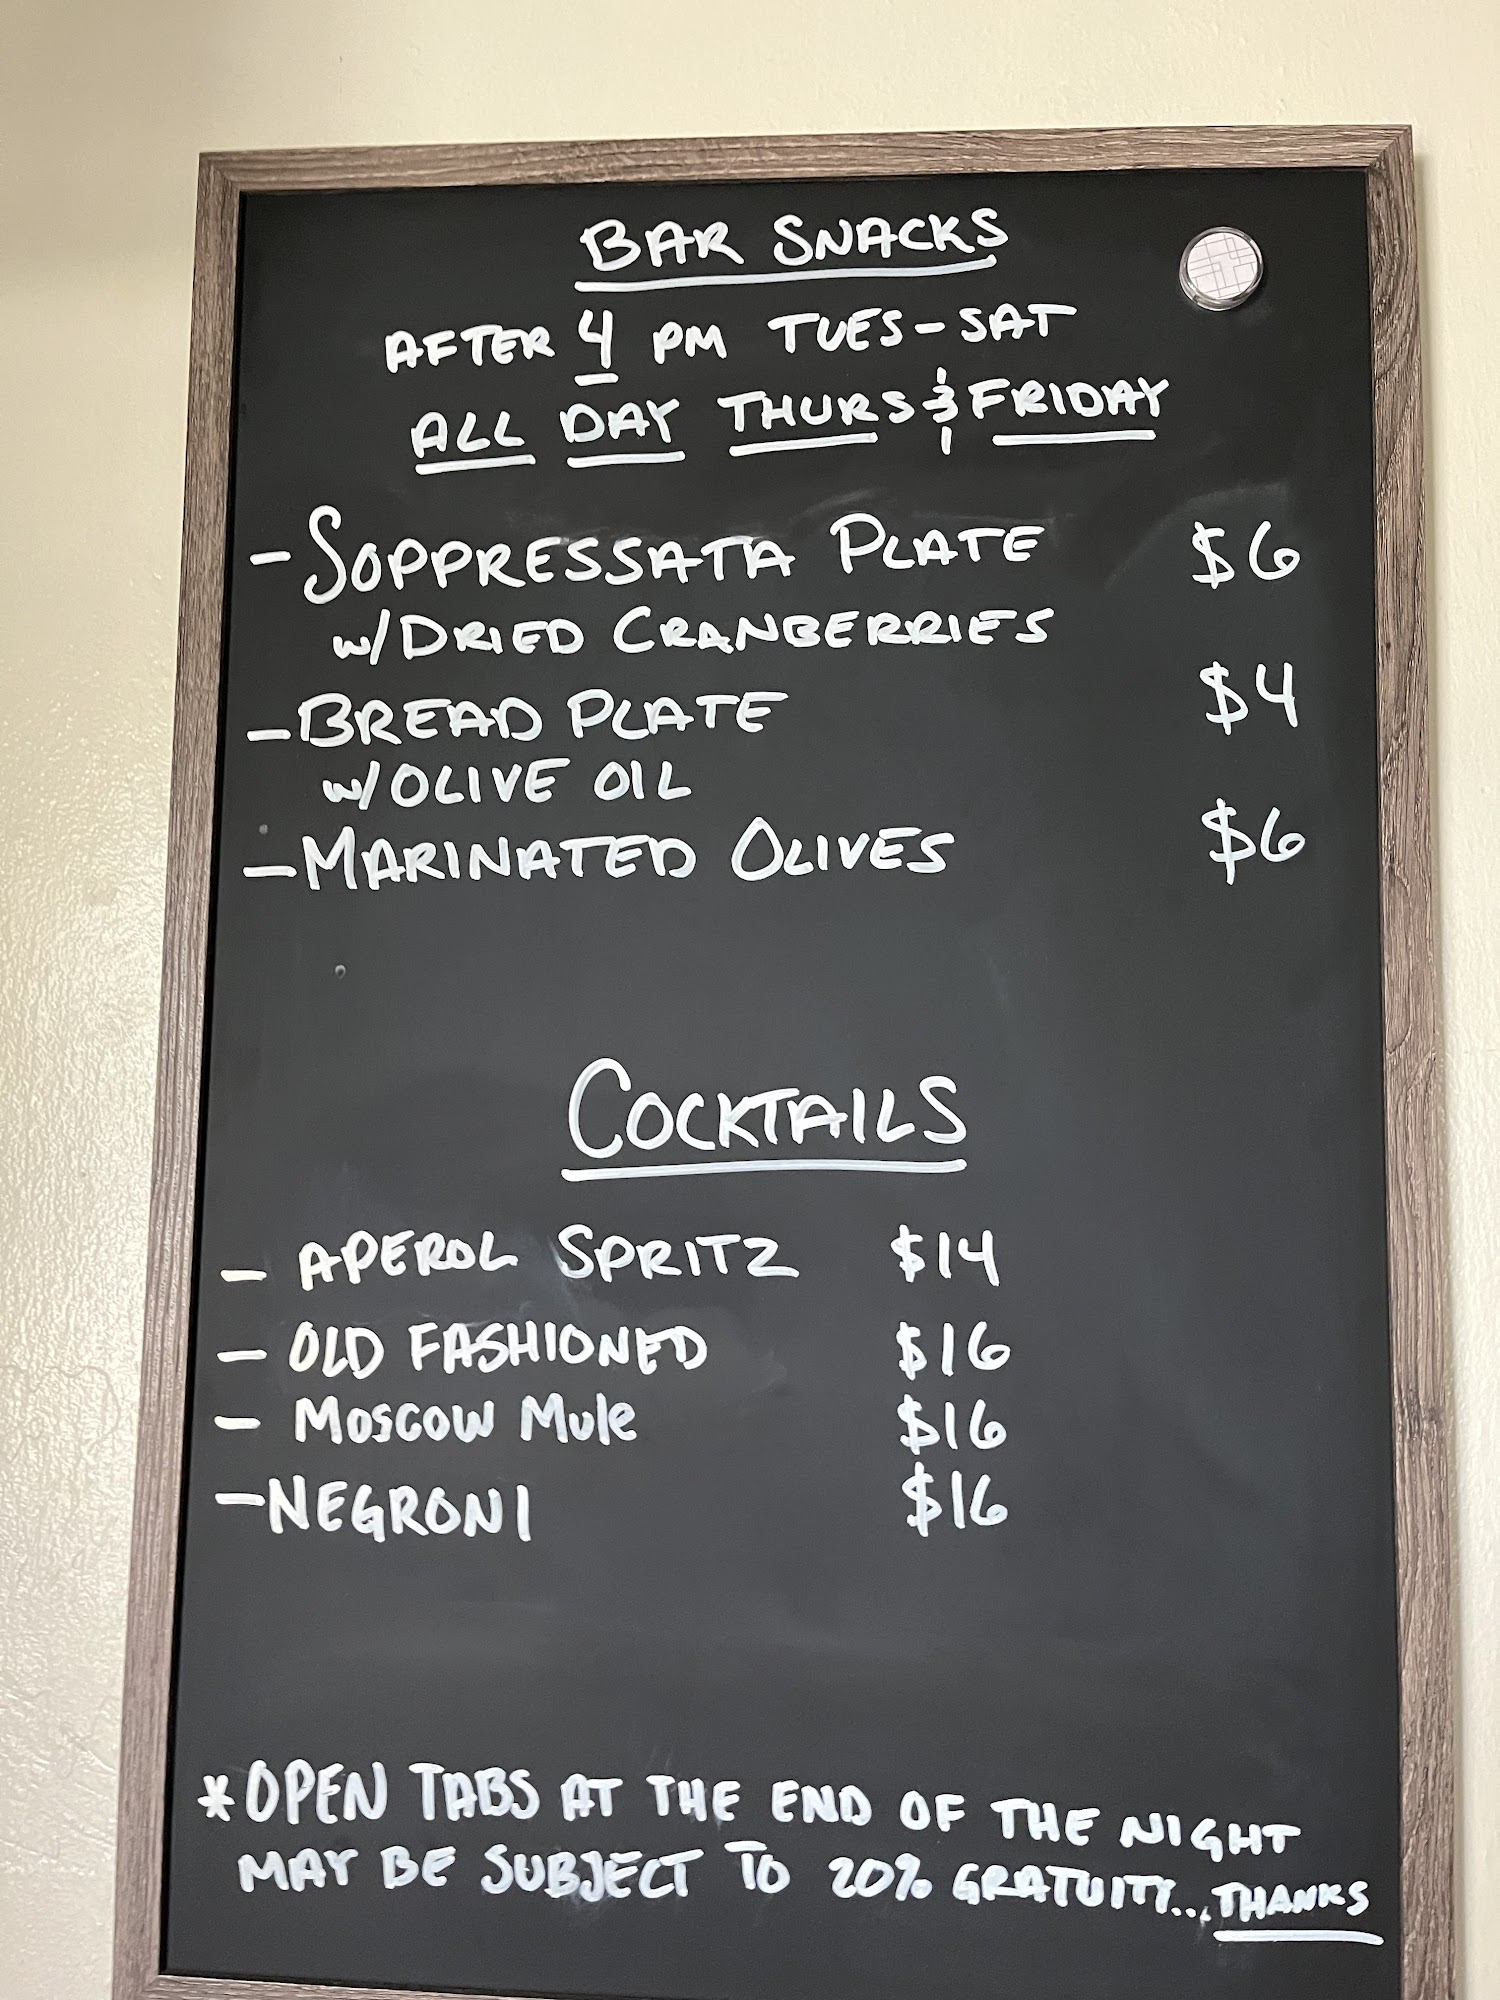 BAR SNACKS
AFTER 4 PM TUES-SAT
ALL DAY THURS & FRIDAY
- SOPPRESSATA PLATE $6
w/DRIED CRANBERRIES
- BREAD PLATE $4
w/OLIVE OIL
- MARINATED OLIVES $6
COCKTAILS
- APEROL SPRITZ $14
- OLD FASHIONED $16
- MOSCOW MULE $16
- NEGRONI $16
*OPEN TABS AT THE END OF THE NIGHT
MAY BE SUBJECT TO 20% GRATUITY... THANKS